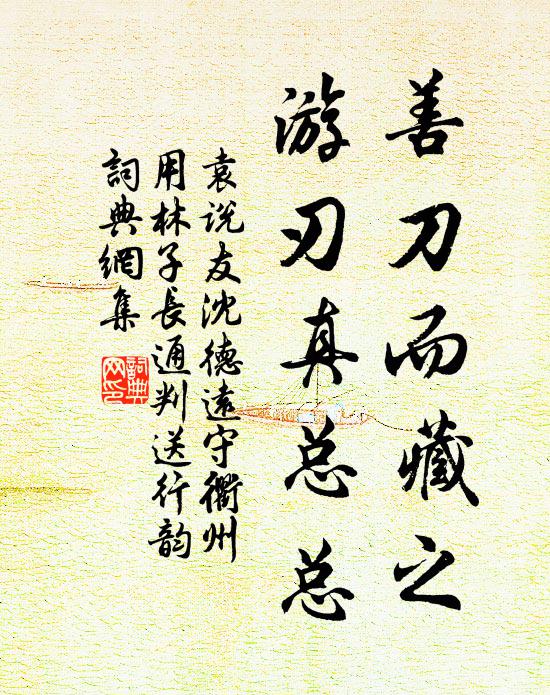 善刀而藏之
游刃真总总
袁说友沈德遠守衢州
用林子長通判送行韵
詞典網集
詞典网印